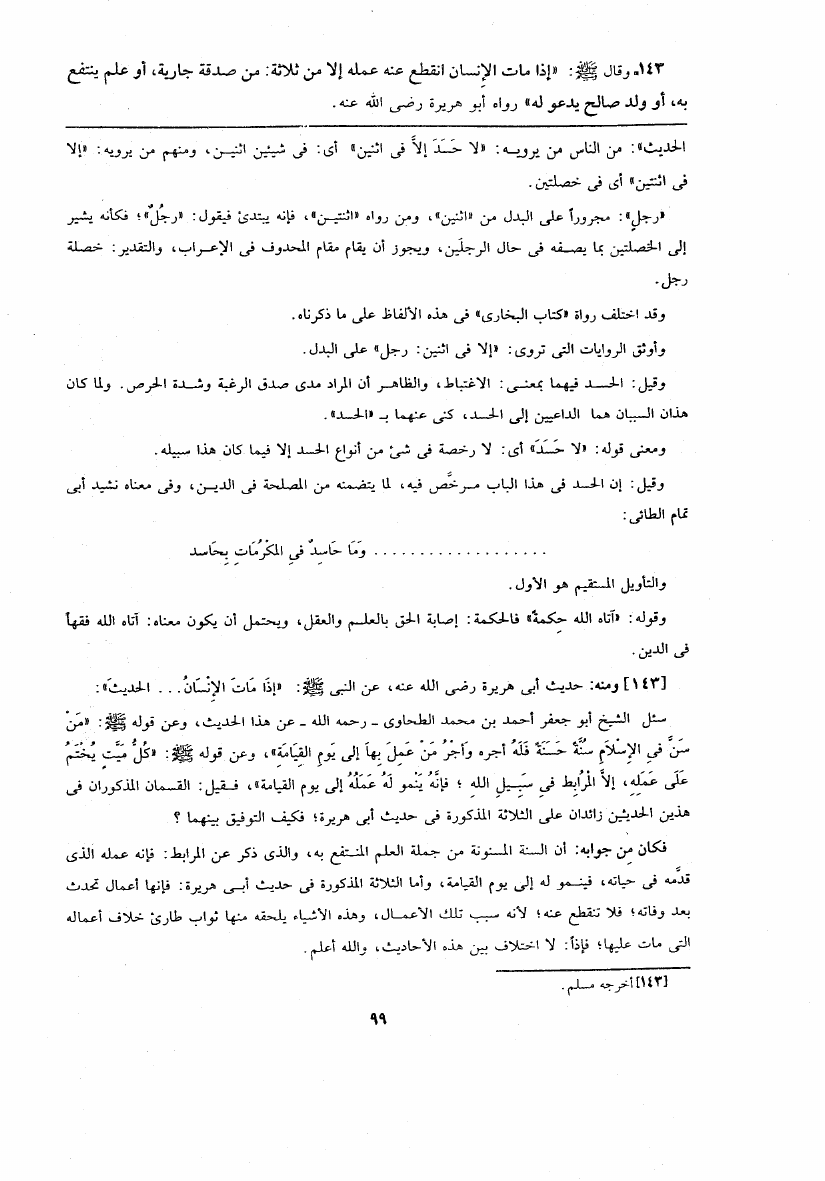 ١٤٣ـ وقال ﷺ: «إذا مات الإنسان انقطع عنه عمله إلا من ثلاثة: من صدقة جارية، أو علم ينتفع
به، أو ولد صالح يدعو له» رواه أبو هريرة رضى الله عنه.
الحديث»: من الناس من يرويه: «لا حَسَدَ إلاَّ فى اثنين» أى: فى شيئين اثنين، ومنهم من يرويه: «إلا
فى اثنتين» أى فى خصلتين.
«رجلٍ»: مجروراً على البدل من «اثنين»، ومن رواه «اثنتين»، فإنه يبتدئ فيقول: «رجُلٌ»؛ فكأنه يشير
إلى الخصلتين بما يصفه فى حال الرجلَين، ويجوز أن يقام مقام المحدوف فى الإعراب، والتقدير: خصلة
رجل.
وقد اختلف رواة «كتاب البخارى» فى هذه الألفاظ على ما ذكرناه.
وأوثق الروايات التى تروى: «إلا فى اثنين: رجل» على البدل.
وقيل: الحسد فيهما بمعنى: الاغتباط، والظاهر أن المراد مدى صدق الرغبة وشدة الحرص. ولما كان
هذان السببان هما الداعيين إلى الحسد، كنى عنهما بـ «الحسد».
ومعنى قوله: «لا حَسَدَ» أى: لا رخصة فى شئ من أنواع الحسد إلا فيما كان هذا سبيله.
وقيل: إن الحسد فى هذا الباب مرخَّص فيه، لما يتضمنه من المصلحة فى الدين، وفى معناه نشيد أبى
تمام الطائى:
................... وَمَا حَاسِدٌ فىِ المَكْرُمَاتِ بِحَاسد
والتأويل المستقيم هو الأول.
وقوله: «آتاه الله حِكمةً» فالحكمة: إصابة الحق بالعلم والعقل، ويحتمل أن يكون معناه: آتاه الله فقهاً
فى الدين.
[١٤٣] ومنه: حديث أبى هريرة رضى الله عنه، عن النبى ﷺ: «إذَا مَاتَ الإنْسَانُ... الحديثَ»:
سئل الشيخ أبو جعفر أحمد بن محمد الطحاوى ـ رحمه الله ـ عن هذا الحديث، وعن قوله ﷺ: «مَنْ
سَنَّ فىِ الإسْلاَمِ سُنَّةً حَسَنَةً فَلَهُ أجره وأجْرُ مَنْ عَمِلَ بِها إلى يَومِ القِيَامَةِ»، وعن قوله ﷺ: «كُلُّ مَيِّتٍ يُخْتَمُ
عَلَى عَمَلِهِ، إلاَّ المُرَابِط فىِ سَبِيلِ اللهِ ؛ فإنَّهُ يَنْمو لَهُ عَمَلُهُ إلى يوم القيامة»، فقيل: القسمان المذكوران فى
هذين الحديثين زائدان على الثلاثة المذكورة فى حديث أبى هريرة؛ فكيف التوفيق بينهما ؟
فكان من جوابه: أن السنة المسنونة من جملة العلم المنتفع به، والذى ذكر عن المرابط: فإنه عمله الذى
قدَّمه فى حياته، فينمو له إلى يوم القيامة، وأما الثلاثة المذكورة فى حديث أبى هريرة: فإنها أعمال تحدث
بعد وفاته؛ فلا تنقطع عنه؛ لأنه سبب تلك الأعمال، وهذه الأشياء يلحقه منها ثواب طارئ خلاف أعماله
التى مات عليها؛ فإذاً: لا اختلاف بين هذه الأحاديث، والله أعلم.
[١٤٣] أخرجه مسلم.
٩٩